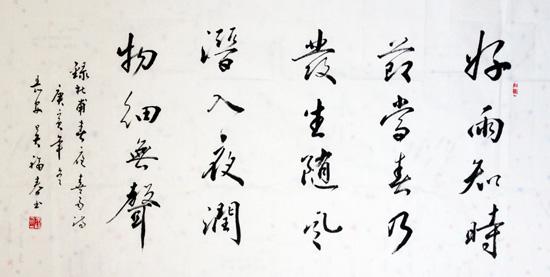 好雨知時
節當春乃
發生随風
潛入夜潤
物細無聲
錄杜甫春夜喜雨詩
庚寅年冬
吴福春书